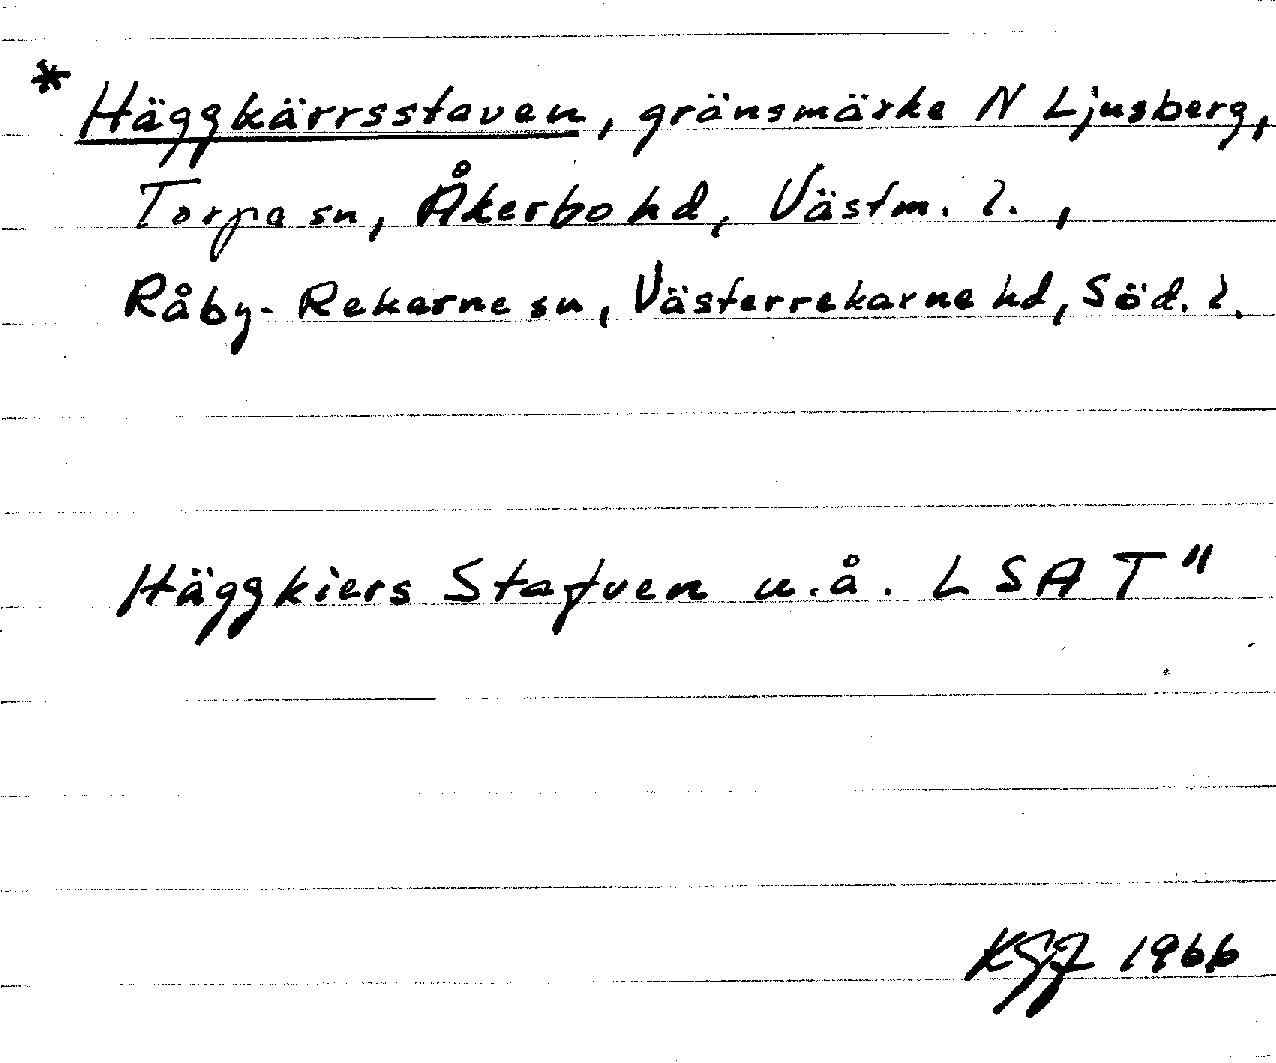 * Häggkärrsstaven, gränsmärke N Ljusberg,
Torpa sn, Åkerbo hd, Västm. l.,
Råby-Rekarne sn, Västerrekarne hd, Söd. l.
Häggkiers Stafven u.å. LSA T"
KGJ 1966